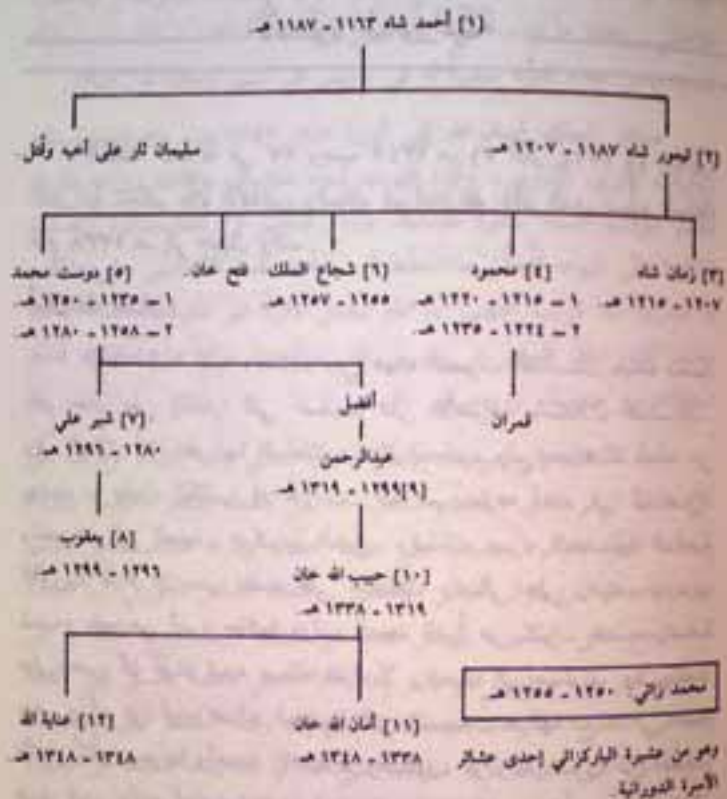 [١] أحمد شاه ١١٦٣ - ١١٨٧ هـ
[٢] تيمور شاه ١١٨٧ - ١٢٠٧ هـ.
سليمان ثار على أخيه وقُتل.
[٣] زمان شاه
١٢٠٧ - ١٢١٥ هـ
[٤] محمود
١ - ١٢١٥ - ١٢٢٠ هـ
٢ - ١٢٢٤ - ١٢٣٥ هـ
[٦] شجاع الملك
١٢٥٥ - ١٢٥٧ هـ
فتح خان.
[٥] دوست محمد
١ - ١٢٣٥ - ١٢٥٠ هـ
٢ - ١٢٥٨ - ١٢٨٠ هـ
قمران
أفضل
[٧] شير علي
١٢٨٠ - ١٢٩٦ هـ.
عبدالرحمن
[٩] ١٢٩٩ - ١٣١٩ هـ
[٨] يعقوب
١٢٩٦ - ١٢٩٩ هـ.
[١٠] حبيب الله خان
١٣١٩ - ١٣٣٨ هـ
محمد زائي: ١٢٥٠ - ١٢٥٥ هـ
[١١] أمان الله خان
١٣٣٨ - ١٣٤٨ هـ
[١٢] عناية الله
١٣٤٨ - ١٣٤٨ هـ
وهو من عشيرة الباركزائي إحدى عشائر
الأسرة الدورانية.